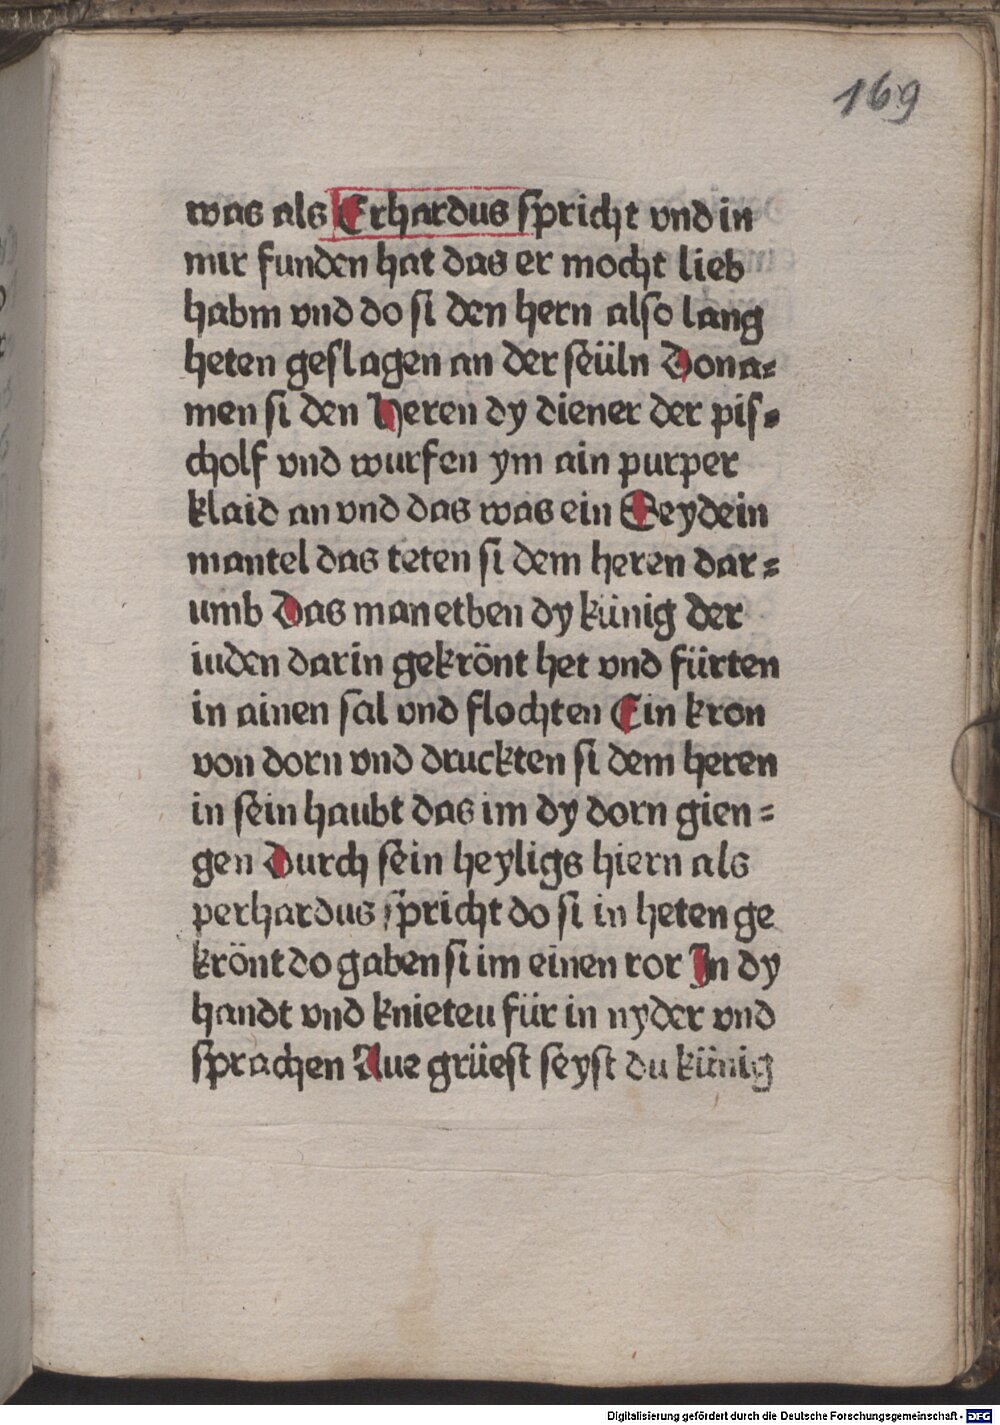 169
was als Erhardus spricht vnd in
mir funden hat das er mocht lieb
habm vnd do si den hern also lang
heten geslagen an der seüln Dona-
men si den Heren dy diener der pis-
cholf vnd wurfen ym ain purper
klaid an vnd das was ein Seydein
mantel das teten si dem heren dar-
umb Das man etben dy künig der
iuden darin gekrönt het vnd fürten
in ainen sal vnd flochten Ein kron
von dorn vnd druckten si dem heren
in sein haubt das im dy dorn gien-
gen Durch sein heyligs hiern als
perhardus spricht do si in heten ge
krönt do gaben si im einen ror In dy
handt vnd knieteu für in nyder vnd
sprachen Aue grüest seyst du künig
Digitalisierung gefördert durch die Deutsche Forschungsgemeinschaft - DFG